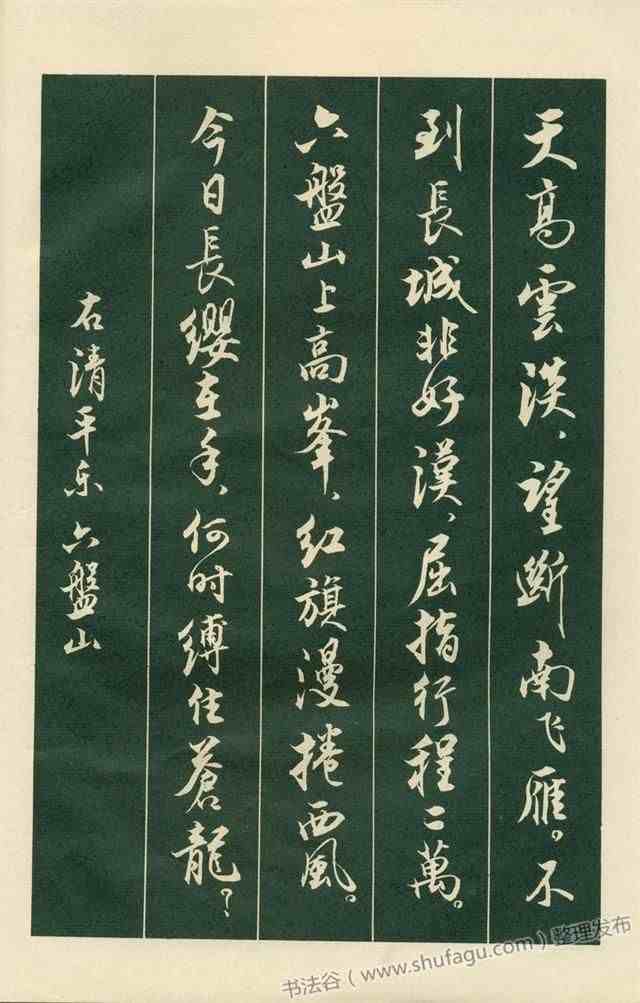 天高雲淡，望斷南飞雁。不
到長城非好漢，屈指行程二萬。
六盤山上高峯，红旗漫捲西風。
今日長纓在手，何时縛住蒼龍？
右清平乐 六盤山
书法谷（www.shufagu.com）整理发布